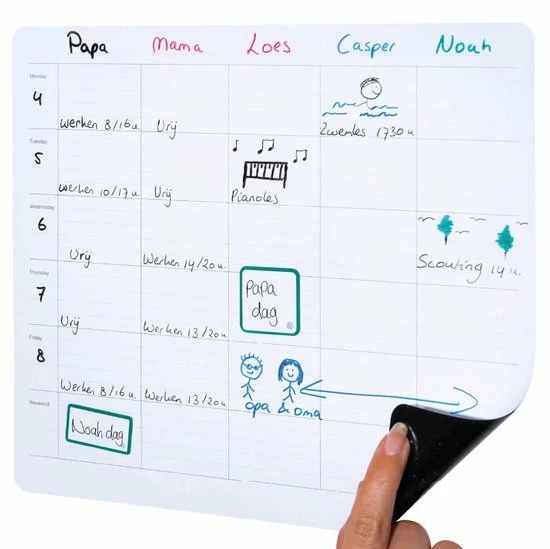 Papa Mama Loes Casper Noah
Monday
4
Werken 8/16 u. Vrij Zwemles 1730 u.
Tuesday
5
Werken 10/17 u. Vrij Pianoles
Wednesday
6
Vrij Werken 14/20 u. Scouting 14 u.
Thursday
7
Papa
dag
Vrij Werken 13/20 u.
Friday
8
Werken 8/16 u. Werken 13/20 u. opa & oma
Weekend
Noah dag